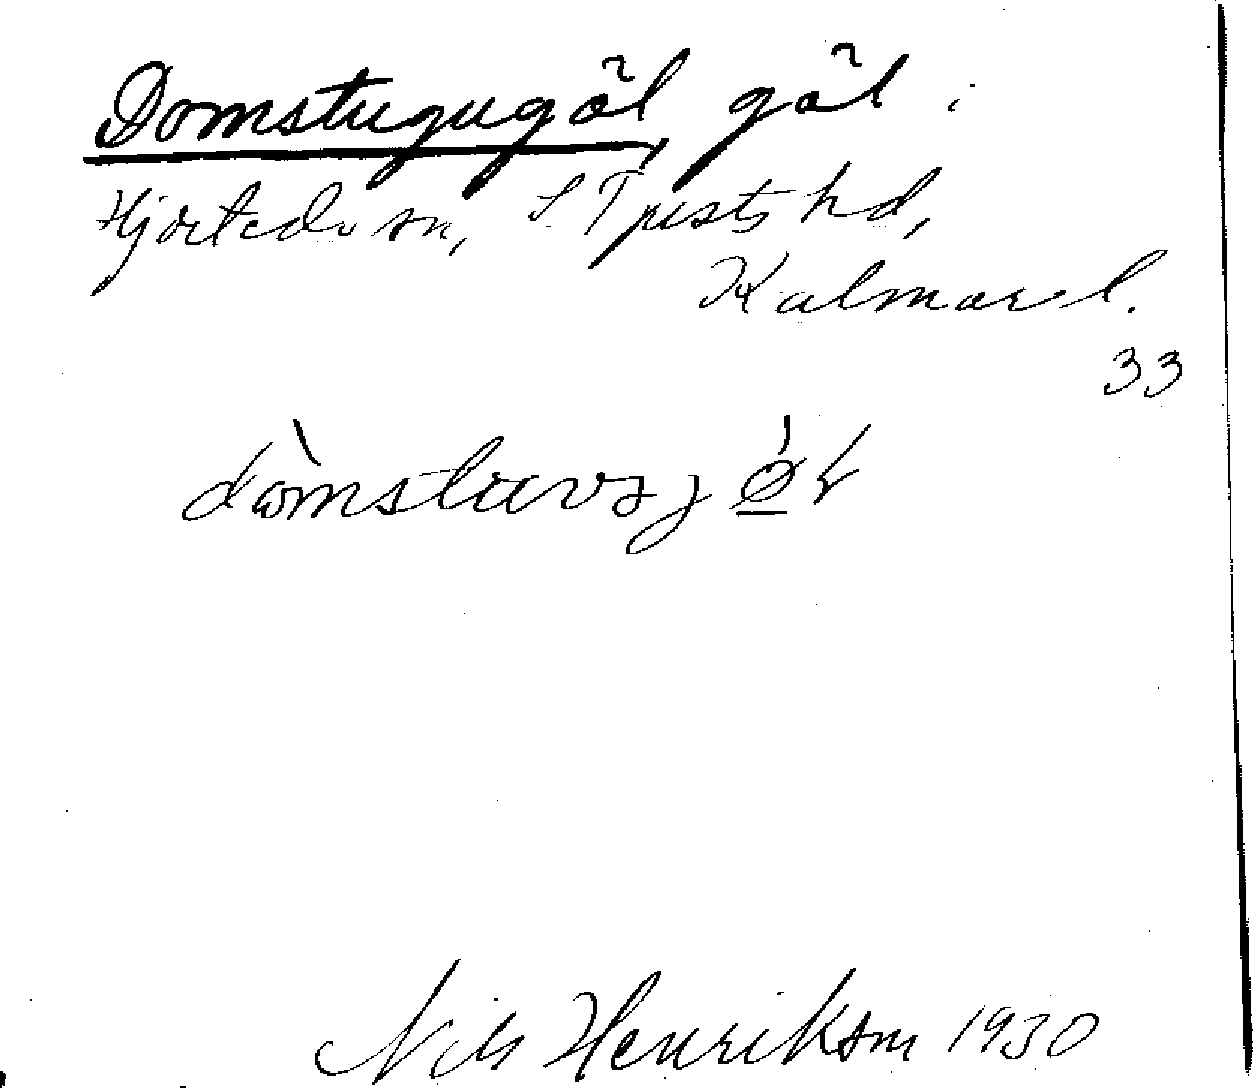 Domstugugöl, göl i
Hjorteds sn, S Tjusts hd,
Kalmar l.
33
Nils Henrikson 1930